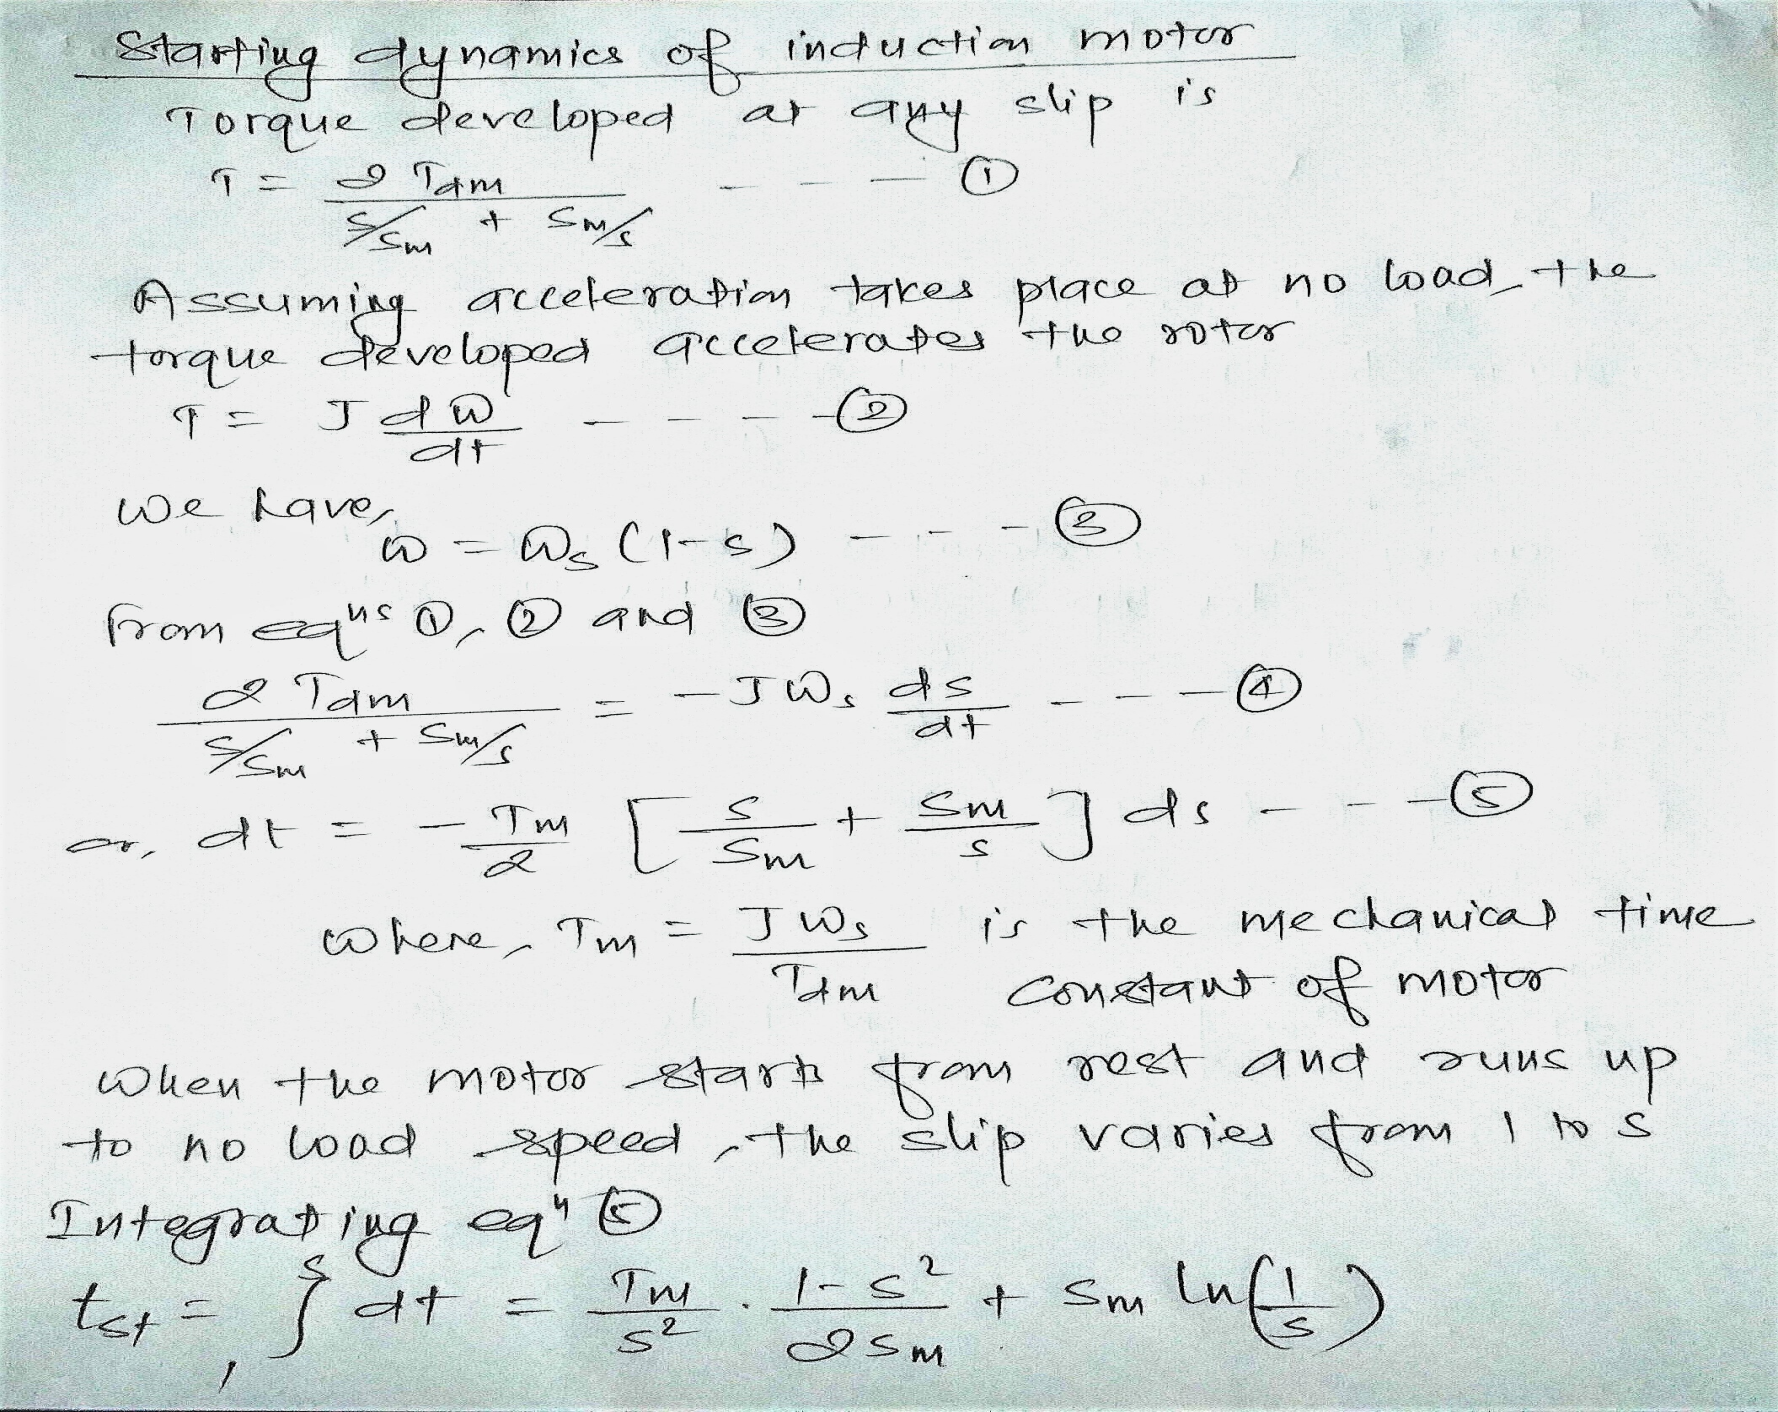 Starting dynamics of induction motor
Torque developed at any slip is
T = 2 Tdm / (s/sm + sm/s) - - - ①
Assuming acceleration takes place at no load, the
torque developed accelerates the rotor
T = J dω/dt - - - - ②
we have,
ω = ωs (1-s) - - - ③
from eqns ①, ② and ③
2 Tdm / (s/sm + sm/s) = - Jωs ds/dt - - - ④
or, dt = - Tm/2 [ s/sm + sm/s ] ds - - - ⑤
where, Tm = Jωs / Tdm is the mechanical time
constant of motor
When the motor starts from rest and runs up
to no load speed, the slip varies from 1 to s
Integrating eqn ⑤
tst = ∫₁ˢ dt = Tm/s² . (1-s²)/(2sm) + sm ln(1/s)